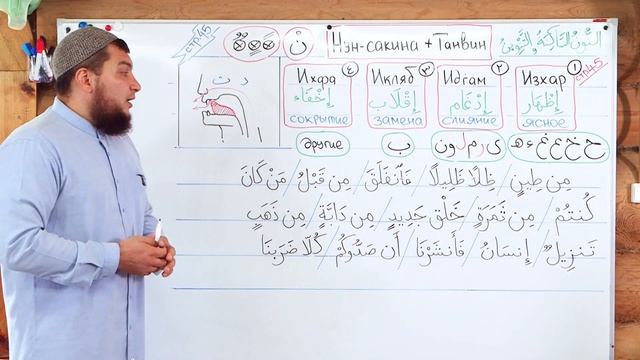 стр45
نْ
Нун-сакина + Танвин
النُّونُ السَّاكِنَةُ وَالتَّنْوِينُ
١ Изхар إِظْهَار ясное
стр45
٢ Идгам إِدْغَام слияние
٣ Икляб إِقْلَاب замена
٤ Ихфа إِخْفَاء сокрытие
ح خ ع غ ء ه
ي ر م ل و ن
ب
другие
د ت
مِن طِينٍ / ظِلًّا ظَلِيلًا / فَٱنفَلَقَ / مِن قَبْلُ / مَن كَانَ
كُنتُمْ / مِن ثَمَرَةٍ / خَلْقٍ جَدِيدٍ / مِن دَابَّةٍ / مِن ذَهَبٍ
تَنزِيلٌ / إِنسَانُ / فَأَنشَرْنَا / أَن صَدُّوكُمْ / كُلًّا ضَرَبْنَا